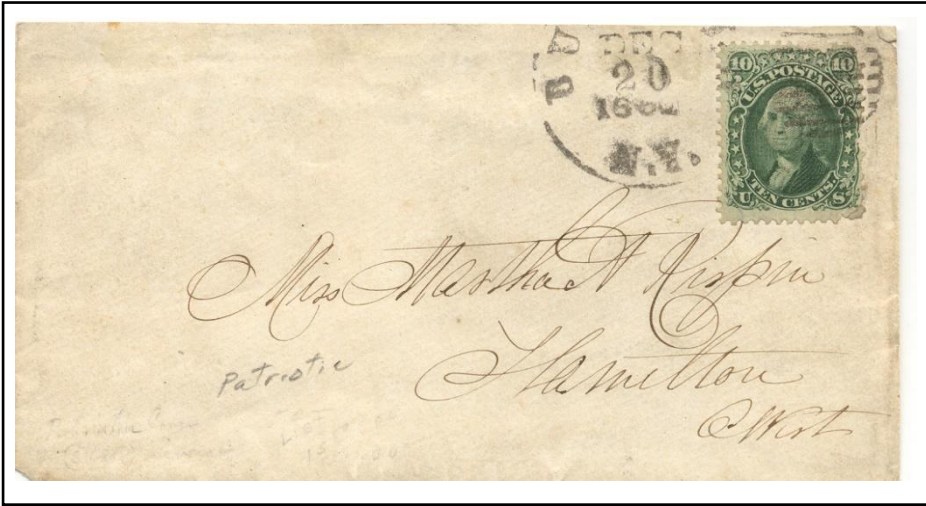 DEC
20
1862
N.Y.
10 10
U.S. POSTAGE
TEN CENTS.
U S
Miss Martha A Kispin
Hamilton
C West
Patriotic